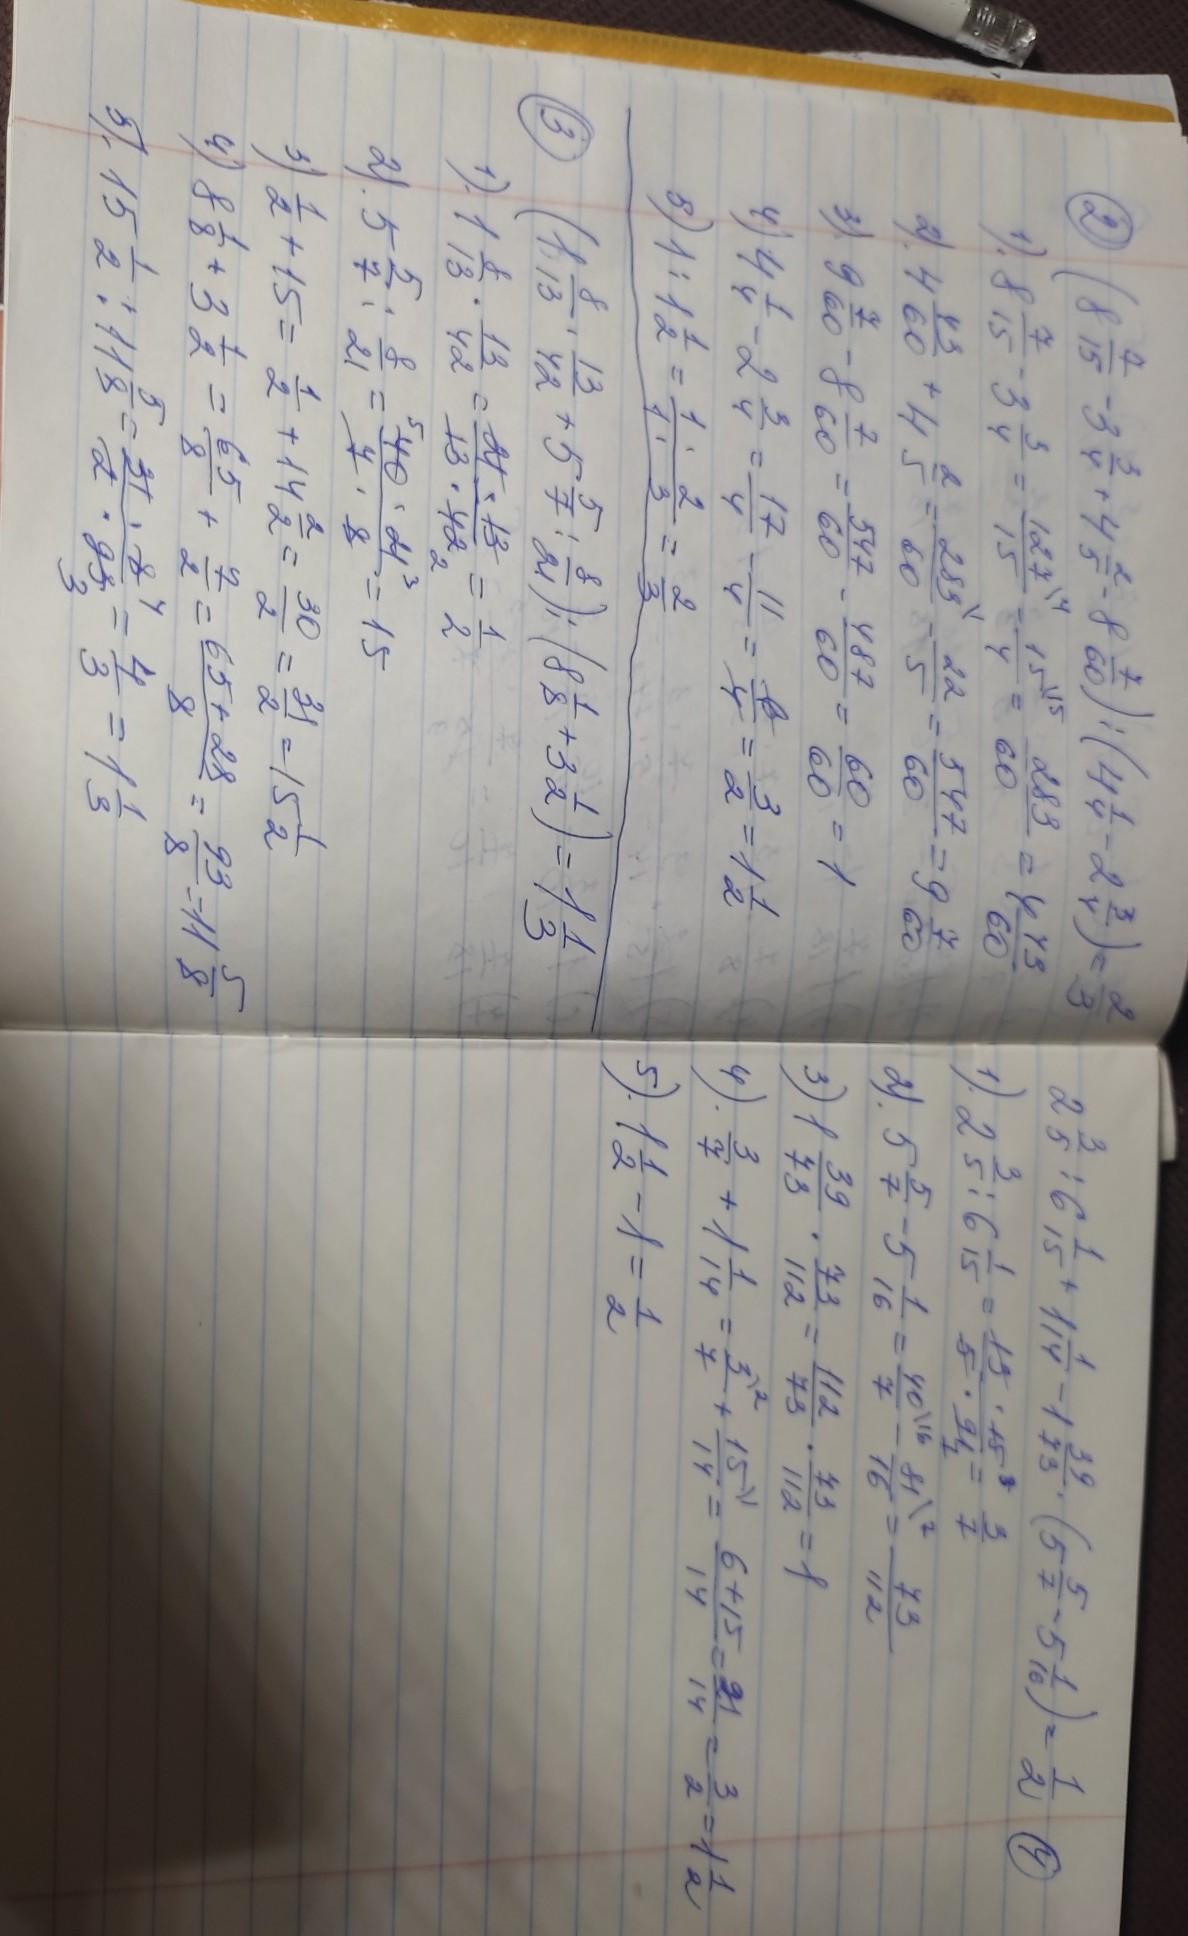 ② (8 7/15 - 3 3/4 + 4 2/5 - 8 7/60) : (4 1/4 - 2 3/4) = 2/3
1). 8 7/15 - 3 3/4 = 127\4/15 - 15\15/4 = 283/60 = 4 43/60
2). 4 43/60 + 4 2/5 = 283\1/60 - 22/5 = 547/60 = 9 7/60
3) 9 7/60 - 8 7/60 = 547/60 - 487/60 = 60/60 = 1
4) 4 1/4 - 2 3/4 = 17/4 - 11/4 = 6/4 = 3/2 = 1 1/2
5) 1 : 1 1/2 = 1 · 2/1 · 3 = 2/3
③ (1 8/13 · 13/42 + 5 5/7 : 8/21) : (8 1/8 + 3 1/2) = 1 1/3
1). 1 8/13 · 13/42 = 21 · 13/13 · 42 2 = 1/2
2). 5 5/7 : 8/21 = 5 40 · 21 3/7 · 8 = 15
3) 1/2 + 15 = 1/2 + 14 2/2 = 30/2 = 31/2 = 15 1/2
4) 8 1/8 + 3 1/2 = 65/8 + 7/2 = 65+28/8 = 93/8 = 11 5/8
5). 15 1/2 : 11 5/8 = 31 · 8 4/2 · 93 3 = 4/3 = 1 1/3
2 3/5 : 6 1/15 + 1 1/14 - 1 39/73 · (5 5/7 - 5 1/16) = 1/2 ④
1). 2 3/5 : 6 1/15 = 13 · 15 3/5 · 91 = 3/7
2). 5 5/7 - 5 1/16 = 40\16/7 - 81\7/16 = 73/112
3) 1 39/73 · 73/112 = 112/73 · 73/112 = 1
4). 3/7 + 1 1/14 = 3\2/7 + 15\1/14 = 6+15/14 = 21/14 = 3/2 = 1 1/2
5). 1 1/2 - 1 = 1/2